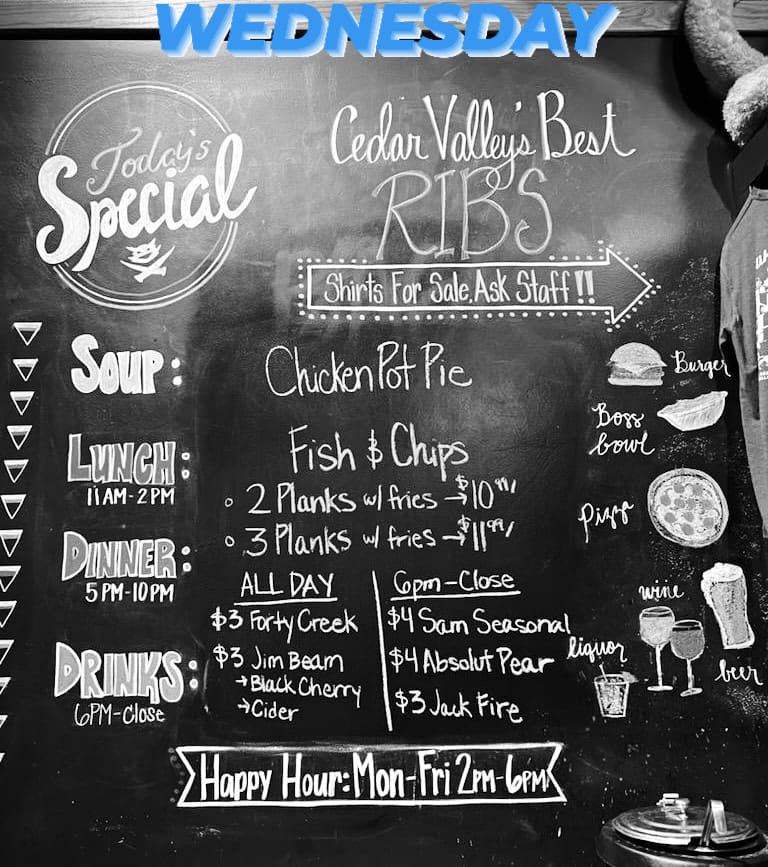 WEDNESDAY
Today's
Special
Cedar Valley's Best
RIBS
Shirts For Sale, Ask Staff!!
Soup:
Chicken Pot Pie
LUNCH:
11AM-2PM
Fish & Chips
2 Planks w/ fries → $10.99/
3 Planks w/ fries → $11.99/
DINNER:
5PM-10PM
ALL DAY
$3 Forty Creek
$3 Jim Beam
→ Black Cherry
→ Cider
6pm-Close
$4 Sam Seasonal
$4 Absolut Pear
$3 Jack Fire
DRINKS:
6PM-Close
Burger
Boss
bowl
Pizza
wine
liquor
beer
Happy Hour: Mon-Fri 2PM-6PM